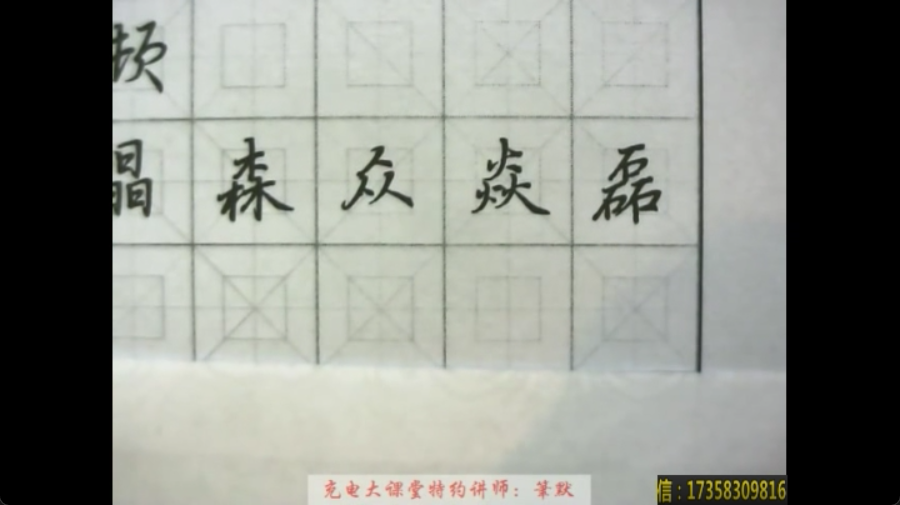 频
晶森众焱磊
充电大课堂特约讲师：笔默
信：17358309816